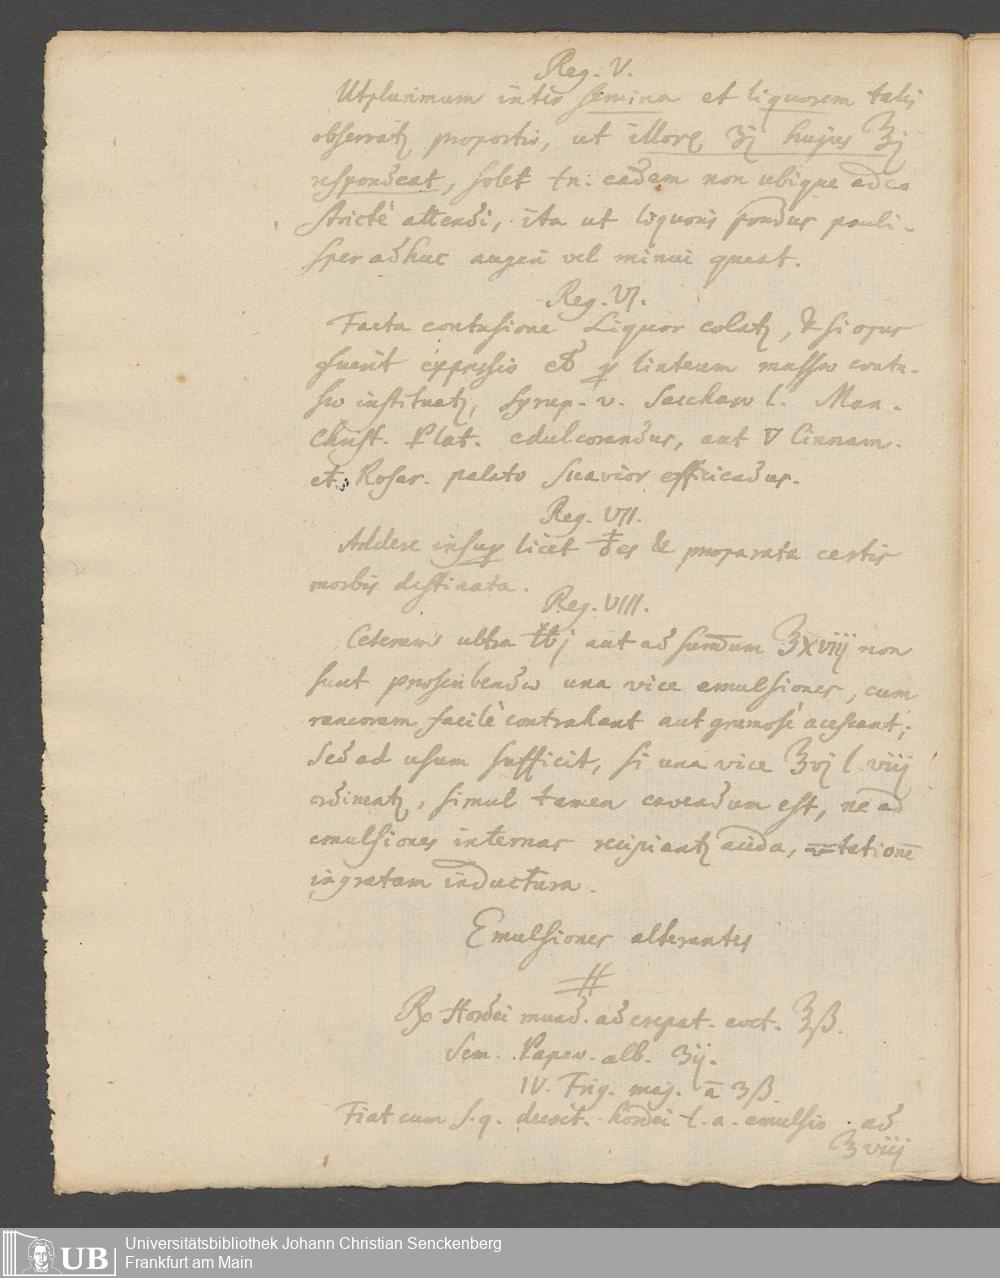 Reg. V.
Utplurimum inter semina et liquorem talis
observatꝫ proportio, ut illorꝝ ʒj hujus ℥j
respondeat, solet tn: eadem non ubique adeo
strictè attendi, ita ut liquoris pondus pauli-
sper adhuc augeri vel minui queat.
Reg. VI.
Facta contusione Liquor colatꝫ, & si opus
fuerit expressio ꝑ linteum massæ contu-
sæ instituatꝫ, syrup. v. Saccharo l. Man.
Christ. Plat. edulcorandus, aut ▽ Cinnam.
et Rosar. palato suavior efficiendus.
Reg. VII.
Addere insuꝑ licet & præparata certis
morbis destinata.
Reg. VIII.
Ceterum ultra ℔j aut ad summum ℥xviij non
sunt præscribendæ una vice emulsiones, cum
rancorem facilè contrahant aut grumosè acescant;
sed ad usum sufficit, si una vice ℥vj l. viij
ordinentꝫ, simul tamen cavendum est, ne ad
emulsiones internas recipiantꝫ acida, tationē
ingratam inductura.
Emulsiones alterantes
#
℞ Hordei mund. ad crepat. coct. ℥ß.
Sem. Papav. alb. ʒij.
IV. Frig. maj. ā ʒß.
Fiat cum s. q. decoct. hordei l. a. emulsio ad
℥viij
UB
Universitätsbibliothek Johann Christian Senckenberg
Frankfurt am Main